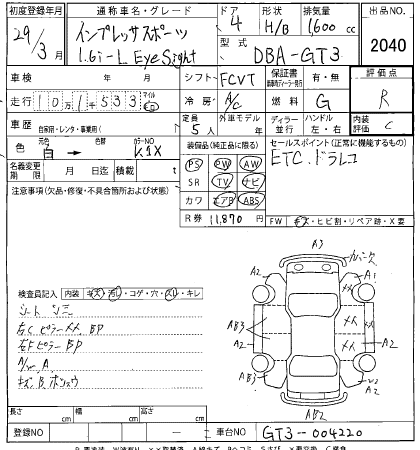 初度登録年月 通称車名・グレード ドア 形状 排気量 出品NO.
29/3月 インプレッサスポーツ 4 H/B 1,600 cc 2040
1.6i-L EyeSight 型式 DBA-GT3
車検 年 月 日 シフト FCVT 保証書 有・無 評価点
走行 10万1千533 マイル 冷房 A/C 燃料 G R
車歴 自家用・レンタ・事業用( ) 定員 5人 外車モデル 年 ディーラー 並行 ハンドル 左・右 内装評価 C
色 元色 白 → 色替 カラーNO K1X 装備品(純正品に限る) セールスポイント(正常に機能するもの)
名義変更期限 月 日迄 積載 t PS PW AW ETC.ドラレコ
注意事項(欠品・修復・不具合箇所および状態) SR TV ナビ
カワ エアB ABS
R券 11,870円 FW キズ・ヒビ割・リペア跡・X要
A3
A2 A1
検査員記入 内装 キズ・汚レ・コゲ・穴・スレ・キレ
シート
左Cピラー メメ BP
右Fピラー BP
AB3 メメ メメ
A2 A2
AB3 A2
AB2
長さ cm 幅 cm 高さ cm
登録NO — 車台NO GT3-004220